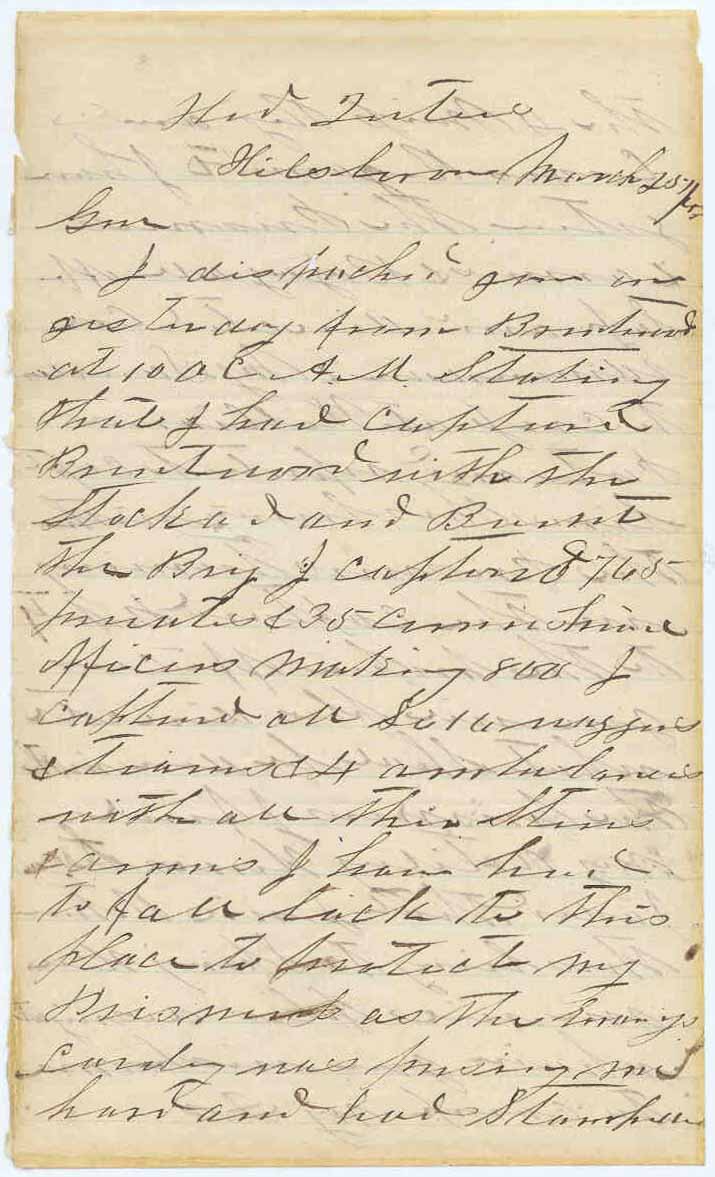 Hed Qutrs
Hilsborow March 25th/63
Genr
I dispached you on
yesterday from Brentwood
at 10 OC A.M. Stating
that I had captured
Brentwood with the
Stockad and Burnt
the Brig I captured 765
privates & 35 commishind
officers making 800 I
captured all So 16 waggons
& teams & 4 ambulances
with all their Stores
& arms I have had
to fall back to this
place to protect my
Prisners as the Enamys
cavaly was presing me
hard and had Stampeded